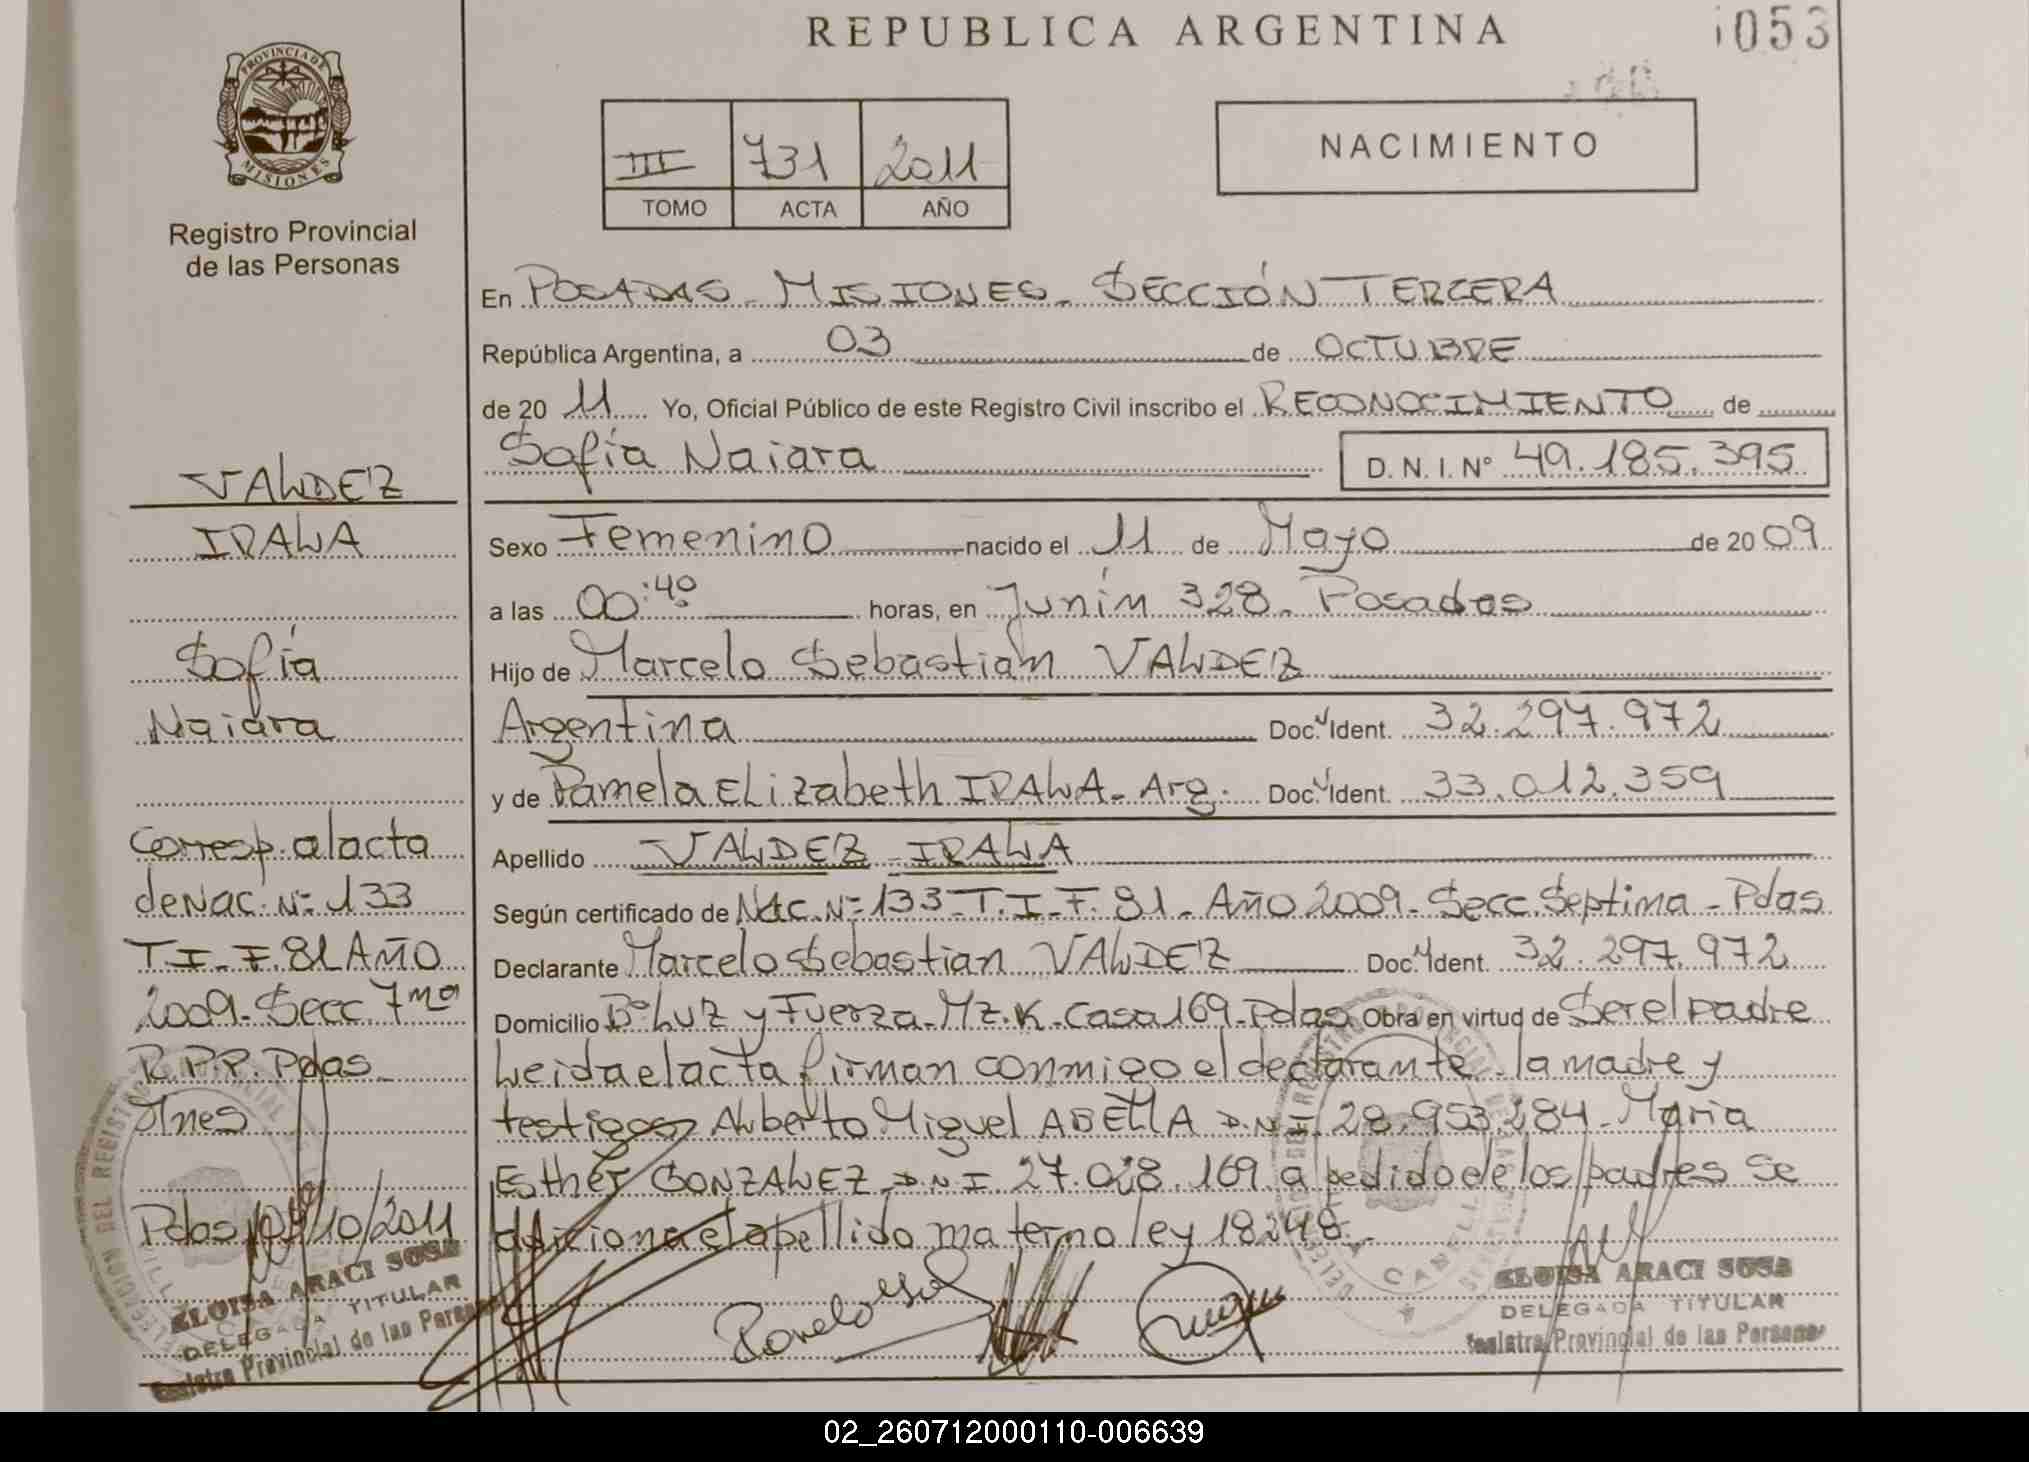 REPUBLICA ARGENTINA
1053
PROVINCIA DE
MISIONES
Registro Provincial
de las Personas
III 731 2011
TOMO ACTA AÑO
NACIMIENTO
En POSADAS - MISIONES - SECCIÓN TERCERA
República Argentina, a 03 de OCTUBRE
de 20 11 Yo, Oficial Público de este Registro Civil inscribo el RECONOCIMIENTO de
Sofía Naiara D.N.I. N° 49.185.395
Sexo Femenino nacido el 11 de Mayo de 20 09
a las 00:40 horas, en Junín 328 - Posadas
Hijo de Marcelo Sebastian VALDEZ
Argentina Doc. Ident. 32.297.972
y de Pamela Elizabeth IRALA - Arg. Doc. Ident. 33.012.359
Apellido VALDEZ IRALA
Según certificado de Nac. N° 133 - T. I - F. 81 - Año 2009 - Secc. Septima - Pdas
Declarante Marcelo Sebastian VALDEZ Doc. Ident. 32.297.972
Domicilio B° Luz y Fuerza - Mz. K - Casa 169 - Pdas Obra en virtud de Ser el padre
Leida el acta firman conmigo el declarante - la madre y
testigos Alberto Miguel ABELLA D.N.I. 28.953.284 - Maria
Esther GONZALEZ D.N.I 27.028.169 a pedido de los padres se
adiciona el apellido materno ley 18248 -
ELOISA ARACI SOSA
DELEGADA TITULAR
Registro Provincial de las Personas
VALDEZ
IRALA
Sofía
Naiara
Corresp. al acta
de Nac. N° 133
T. I - F. 81 AÑO
2009 - Secc 7ma
R.P.P. Pdas
Pdas 03/10/2011
ELOISA ARACI SOSA
DELEGADA TITULAR
Registro Provincial de las Personas
02_260712000110-006639